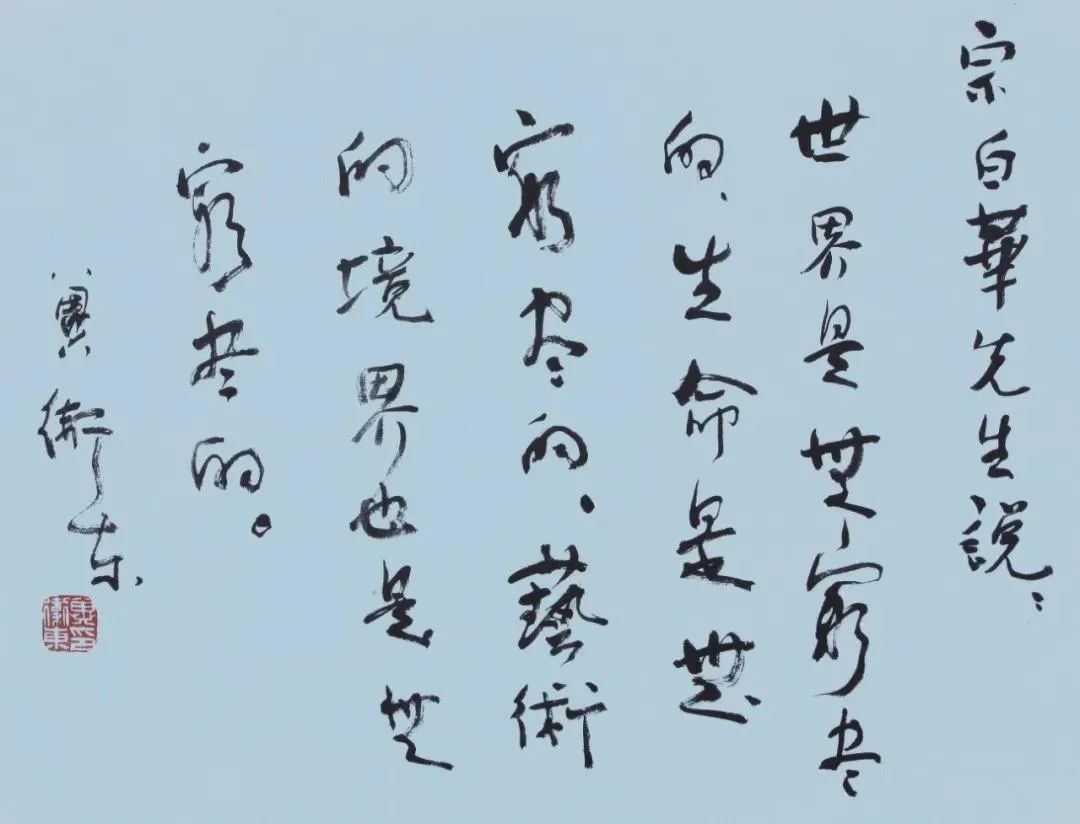 宗白華先生說：
世界是無窮尽
的、生命是無
窮尽的、藝術
的境界也是無
窮尽的。
冀衛东